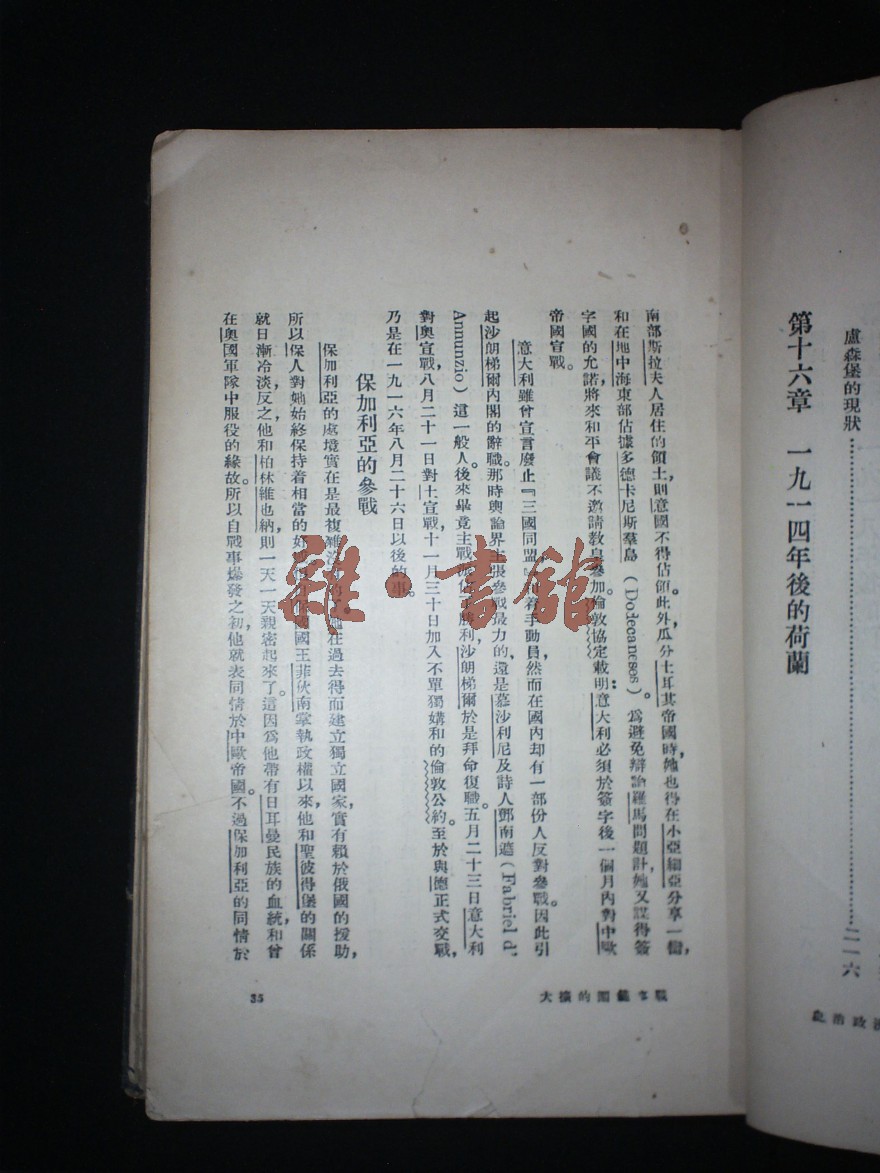 盧森堡的現狀……二一六
第十六章 一九一四年後的荷蘭
南部斯拉夫人居住的領土,則意國不得佔領。此外,瓜分土耳其帝國時,她也得在小亞細亞分享一臠,
和在地中海東部佔據多德卡尼斯羣島(Dodecaneses)。爲避免辯論羅馬問題計,她又謀得簽
字國的允諾將來和平會議不邀請教皇參加。倫敦協定載明:意大利必須於簽字後一個月內對中歐
帝國宣戰。
意大利雖曾宣言廢止『三國同盟』着手動員,然而在國內却有一部份人反對參戰。因此引
起沙朗梯爾內閣的辭職。那時輿論界主張參戰最力的,還是慕沙利尼及詩人鄧南遮(Fabriel d'
Annunzio)這一般人。後來畢竟主戰派佔了勝利,沙朗梯爾於是拜命復職。五月二十三日意大利
對奧宣戰,八月二十一日對土宣戰,十一月三十日加入不單獨媾和的倫敦公約。至於與德正式交戰,
乃是在一九一六年八月二十六日以後的事。
保加利亞的參戰
保加利亞的處境實在是最複雜 在過去得而建立獨立國家,實有賴於俄國的援助,
所以保人對她始終保持着相當的好 國王菲伙南掌執政權以來,他和聖彼得堡的關係
就日漸冷淡,反之他和柏林維也納則一天一天親密起來了。這因爲他帶有日耳曼民族的血統和曾
在奧國軍隊中服役的緣故。所以自戰事爆發之初,他就表同情於中歐帝國。不過保加利亞的同情於
大擴的圍範爭戰
35
雜·書館